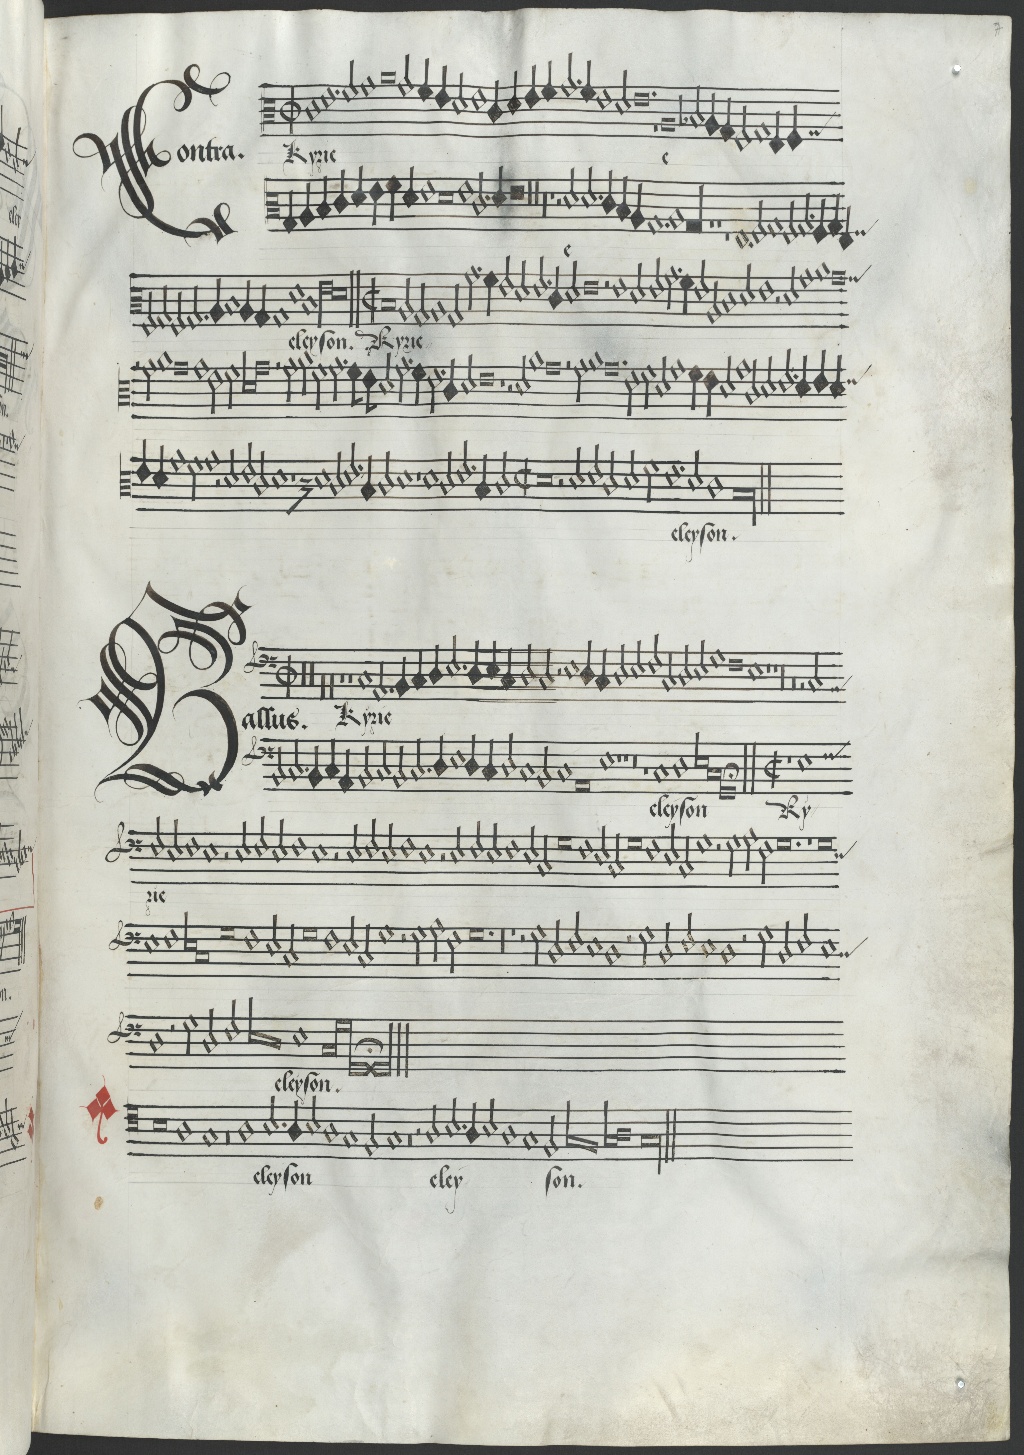 7
Contra. Kyrie e
e
eleyson. Kyrie
3
eleyson.
Bassus. Kyrie
eleyson Ky
rie
eleyson.
eleyson eley son.